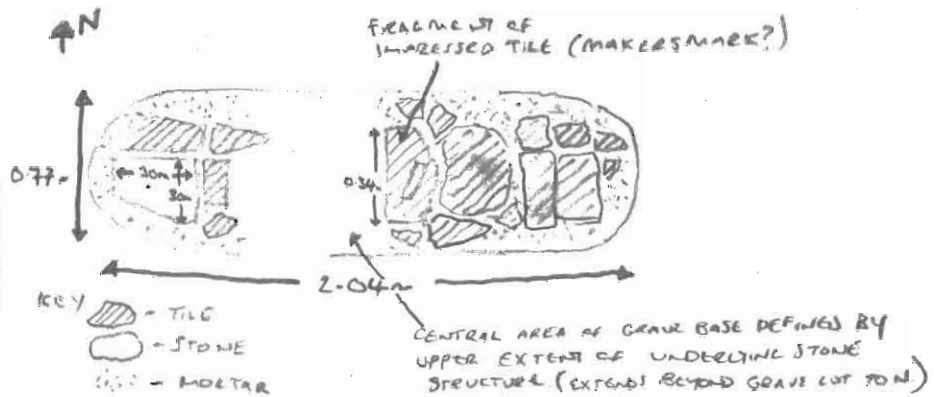 N
FRAGMENT OF
IMPRESSED TILE (MAKERSMARK?)
0.77m
30m
30m
0.34m
2.04m
KEY
- TILE
- STONE
- MORTAR
CENTRAL AREA OF GRAVE BASE DEFINED BY
UPPER EXTENT OF UNDERLYING STONE
STRUCTURE (EXTENDS BEYOND GRAVE CUT TO N)